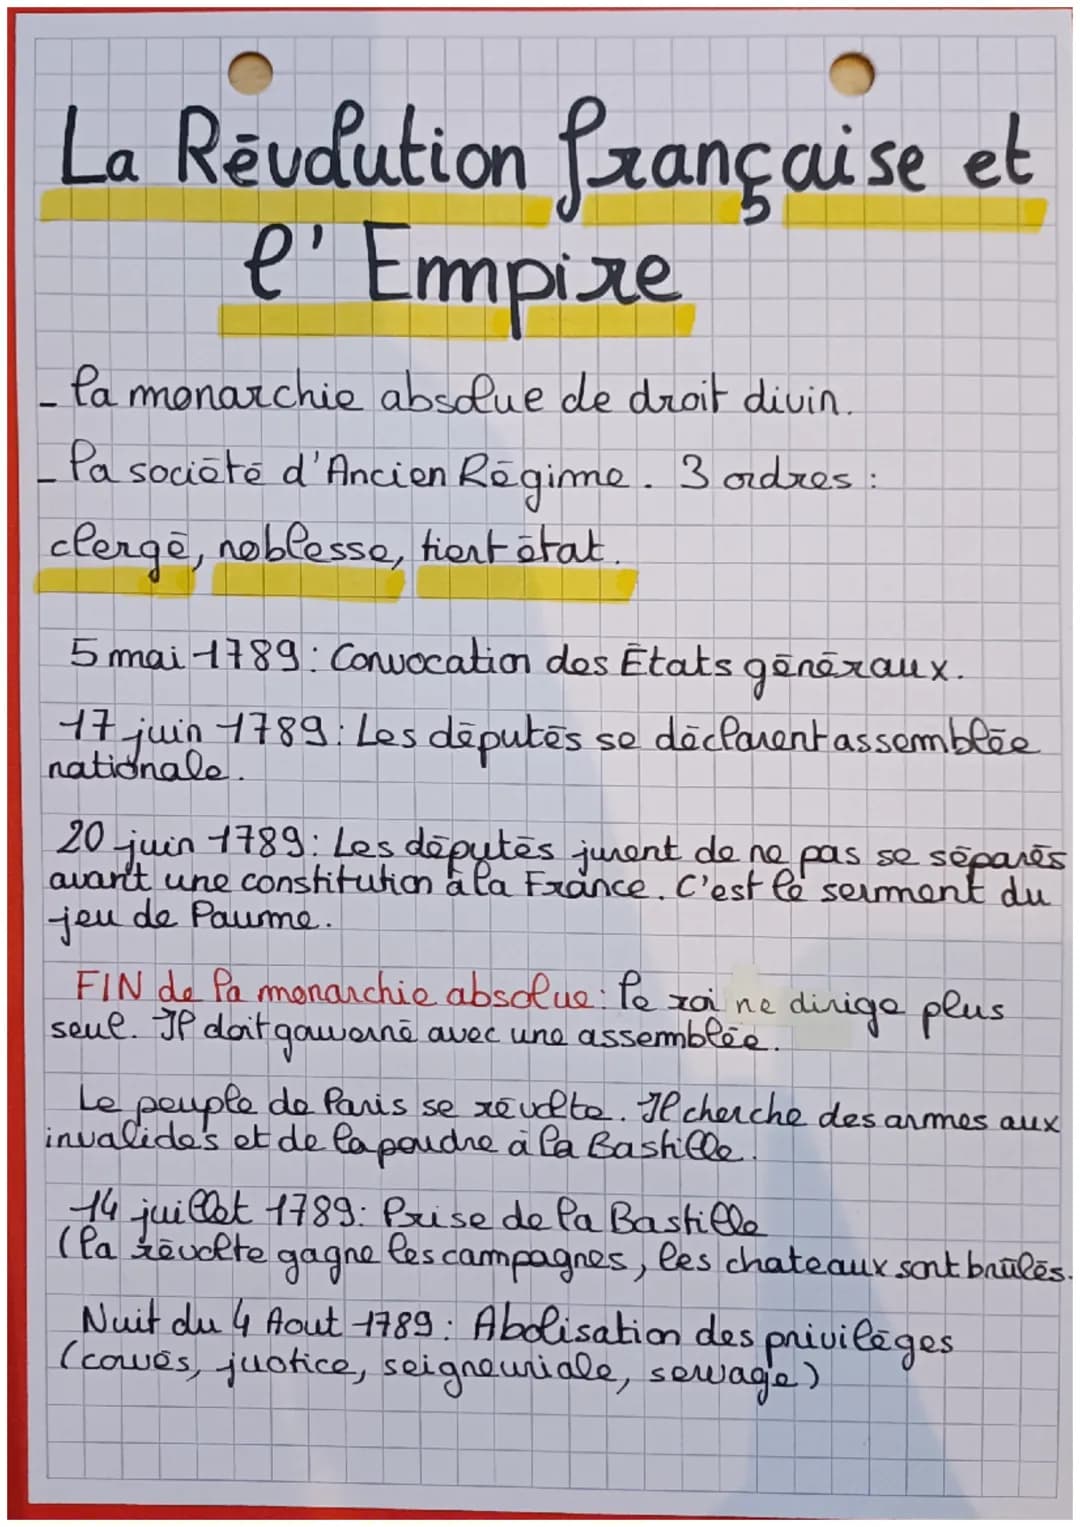 La Révolution française et
l'Empire
- la monarchie absolue de droit divin.
- la société d'Ancien Régime. 3 ordres :
clergé, noblesse, tiert état.
5 mai 1789 : Convocation des États généraux.
17 juin 1789 : Les députés se déclarent assemblée
nationale.
20 juin 1789 : Les députés jurent de ne pas se séparés
avant une constitution à la France. C'est le serment du
jeu de Paume.
FIN de la monarchie absolue : le roi ne dirige plus
seul. Il doit gouverné avec une assemblée.
Le peuple de Paris se révolte. Il cherche des armes aux
invalides et de la poudre à la Bastille.
14 juillet 1789 : Prise de la Bastille
(la révolte gagne les campagnes, les chateaux sont brûlés.
Nuit du 4 Aout 1789 : Abolisation des privilèges
(corvés, justice, seigneuriale, servage)